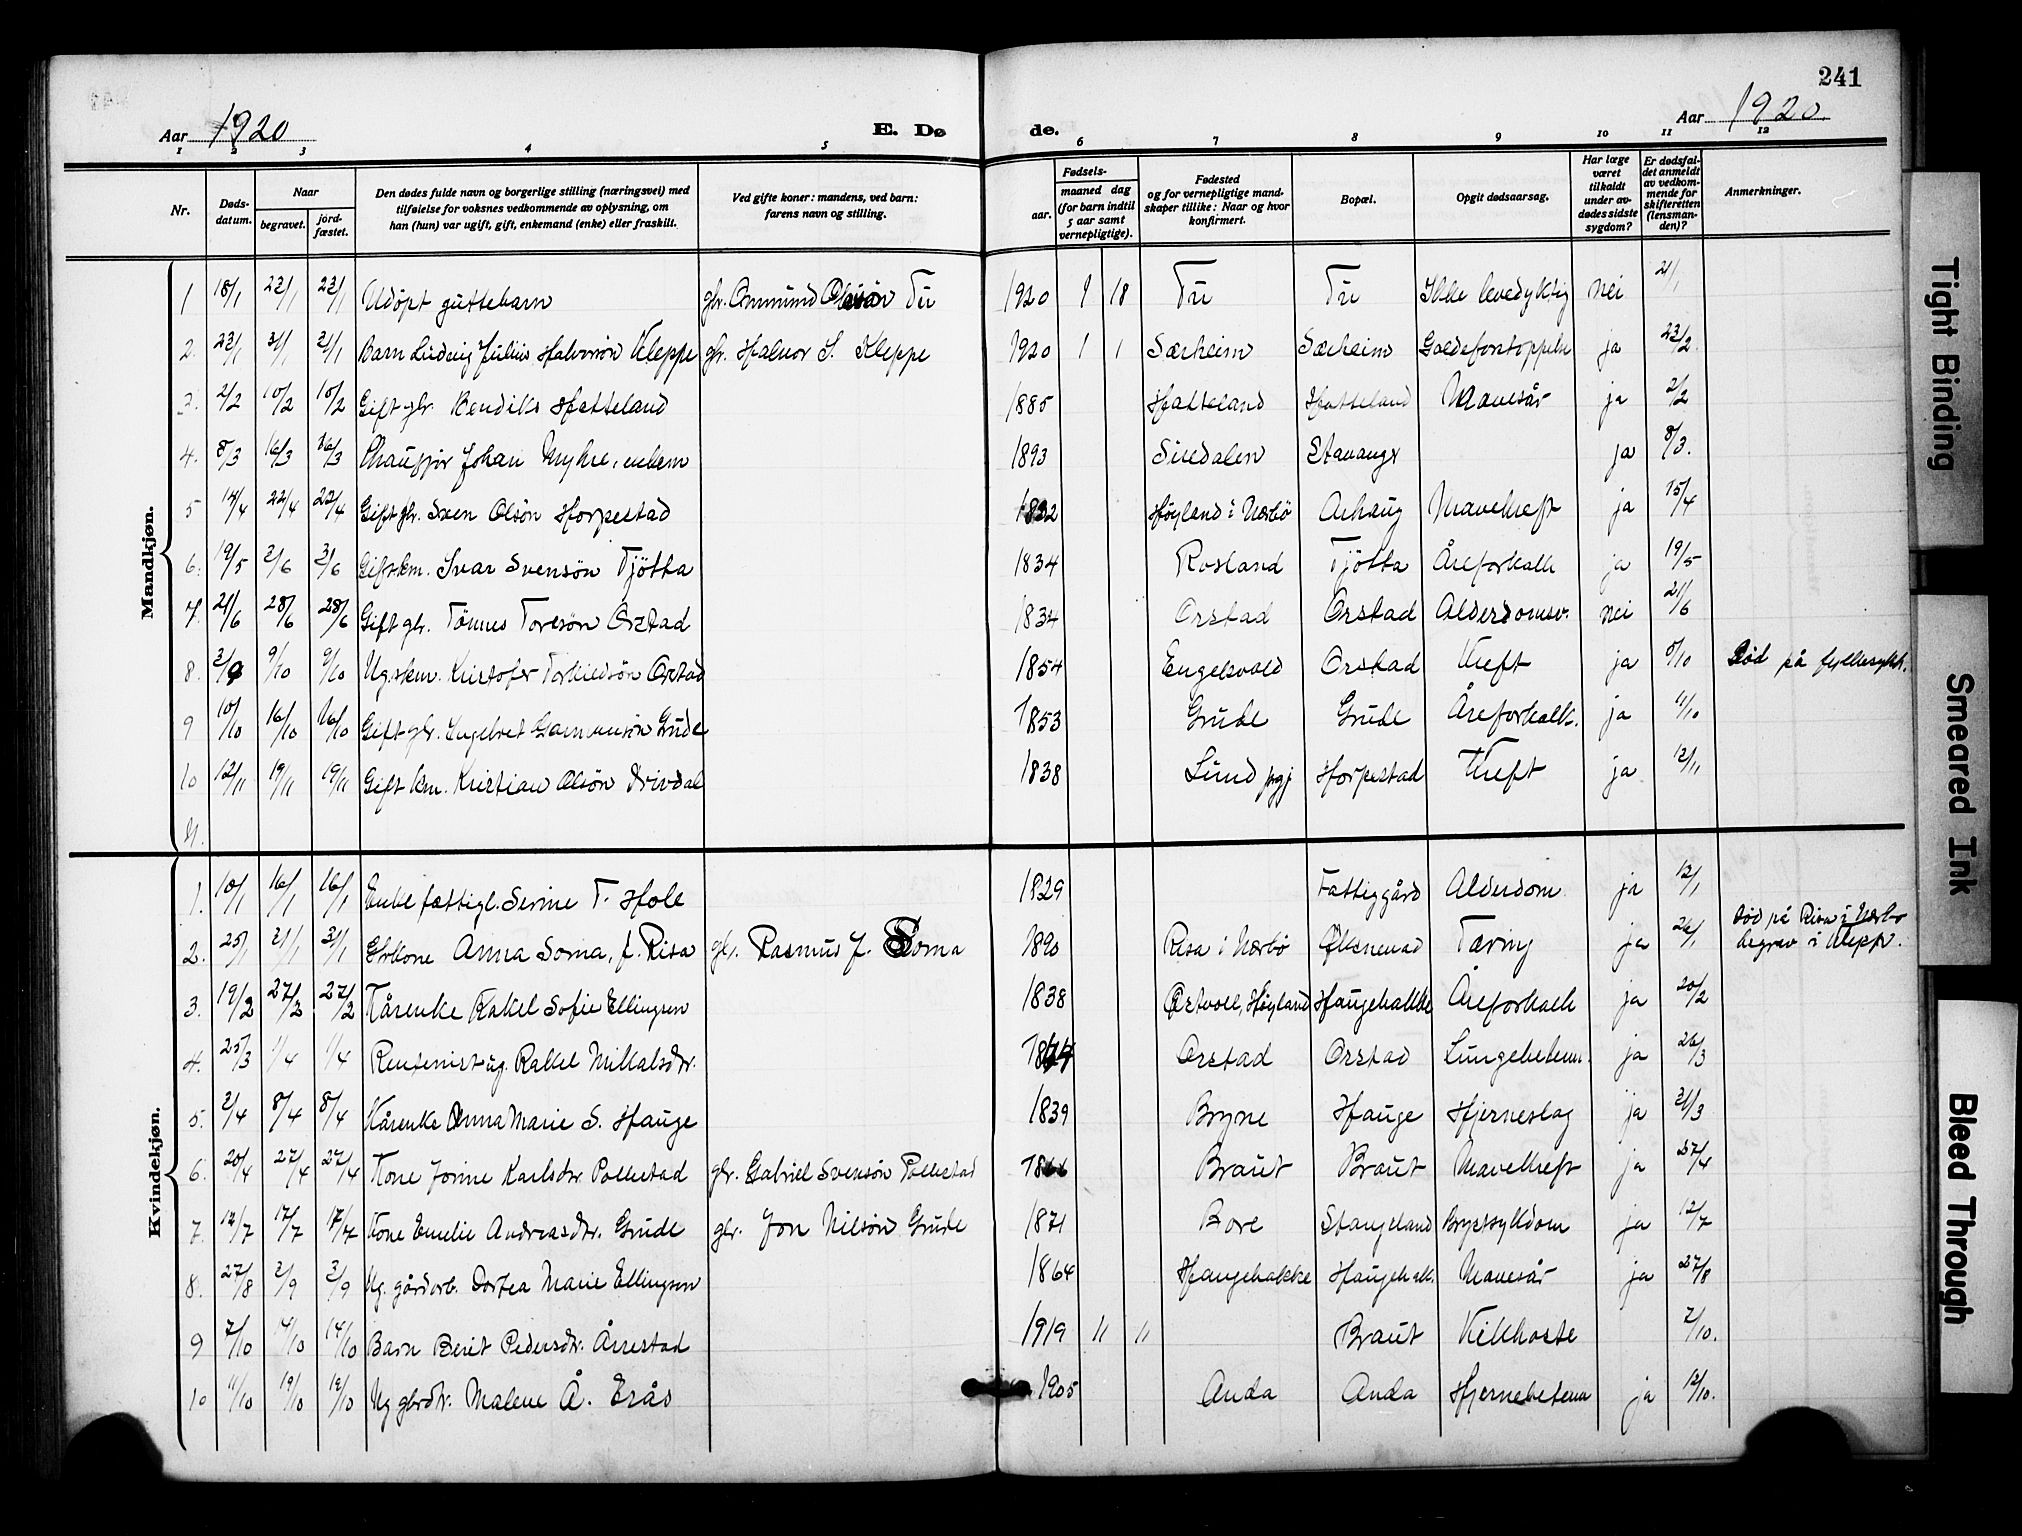 241
Aar 1920 E. Dø de. Aar 1920.
1 2 3 4 5 6 7 8 9 10 11 12
Nr.
Døds-
datum.
Naar
begravet.
jord-
fæstet.
Den dødes fulde navn og borgerlige stilling (næringsvei) med
tilføielse for voksnes vedkommende av oplysning, om
han (hun) var ugift, gift, enkemand (enke) eller fraskilt.
Ved gifte koner: mandens, ved barn:
farens navn og stilling.
Fødsels-
aar.
maaned dag
(for barn indtil
5 aar samt
vernepligtige).
Fødested
og for vernepligtige mand-
skaper tillike: Naar og hvor
konfirmert.
Bopæl.
Opgit dødsaarsag.
Har læge
været
tilkaldt
under av-
dødes sidste
sygdom?
Er dødsfal-
det anmeldt
av vedkom-
mende for
skifteretten
(lensman-
den)?
Anmerkninger.
Mandkjøn.
1 18/1 23/1 23/1 Udöpt guttebarn gbr. Ommund Olsön Tu 1920 1 18 Tu Tu Ikke levedyktig nei 21/1
2. 23/1 31/1 31/1 Barn Ludvig Julius Halvorsön Kleppe gbr. Halvor S. Kleppe 1920 1 1 Særheim Særheim ja 23/2.
3. 2/2 10/2 10/2 Gift gbr. Bendiks Hatteland 1885 Hatteland Hatteland Mavesår ja 2/2
4. 8/3 16/3 16/3 Chauffør Johan Myhre, 1893 Siredalen Stavanger ja 8/3.
5 14/4 22/4 22/4 Gift gbr. Sven Olsön Horpestad Höyland i Nærbö Arhaug Mavekreft ja 15/4
6. 19/5 2/6 2/6 Gift km. Ivar Svensön Tjötta 1834 Rosland Tjötta Åreforkalk ja 19/5
7. 21/6 28/6 28/6 Gift gbr. Tönnes Toresön Orstad 1834 Orstad Orstad Alderdomsv. nei 21/6
8. 9/10 9/10 Ug. km. Kristofer Torkildsön Orstad 1854 Engelsvold Orstad Kreft ja 5/10 Död på fylkessykh.
9 10/10 16/10 16/10 Gift gbr. Ingebret Gamansön Grude 1853 Grude Grude Åreforkalk. ja 11/10
10 12/11 19/11 19/11 Gift km. Kristian Olsön Drivdal 1838 Lund prgj Horpestad Kreft ja 12/11
11.
Kvindekjøn.
1. 10/1 16/1 16/1 Enke fattigl. Serine T. Hole 1829 Fattiggård Alderdom ja 12/1
2. 25/1 31/1 31/1 Gbrkone Anna Soma, f. Risa gbr. Rasmus J. Soma 1890 Risa i Nærbö Öksnevad Tæring ja 26/1 Död på Risa i Nærbö
begrav i Klepp.
3. 19/2 27/2 27/2 Kårenke Rakel Sofie Ellingsen 1838 Ostvoll, Höyland Haugebakke Åreforkalk ja 20/2
4. 25/3 1/4 1/4 Rentenist ug. Rakel Mikkalsdtr. Orstad Orstad Lungebeten. ja 26/3
5. 2/4 8/4 8/4 Kårenke Anna Marie S. Hauge 1839 Bryne Hauge Hjerneslag ja 31/3
6. 20/4 27/4 27/4 Kone Jorine Karlsdtr. Pollestad gbr. Gabriel Svensön Pollestad 1866 Braut Braut Mavekreft ja 27/4
7. 12/7 17/7 17/7 Kone Emelie Andreasdtr. Grude gbr. Jon Nilsön Grude 1871 Bore Stangeland Brystsykdom ja 12/7
8. 27/8 2/9 2/9 Ug. gårdarb. Dortea Marie Ellingsen 1864 Haugebakke Haugebak. Mavesår ja 27/8
9 7/10 14/10 14/10 Barn Berit Pedersdtr. Årrestad 1919 11 11 Braut Kikhoste 7/10.
10 11/10 19/10 19/10 Ug gbrdtr. Malene Å. Erås 1905 Anda Anda Hjernebeten ja 12/10.
Tight Binding
Smeared Ink
Bleed Through